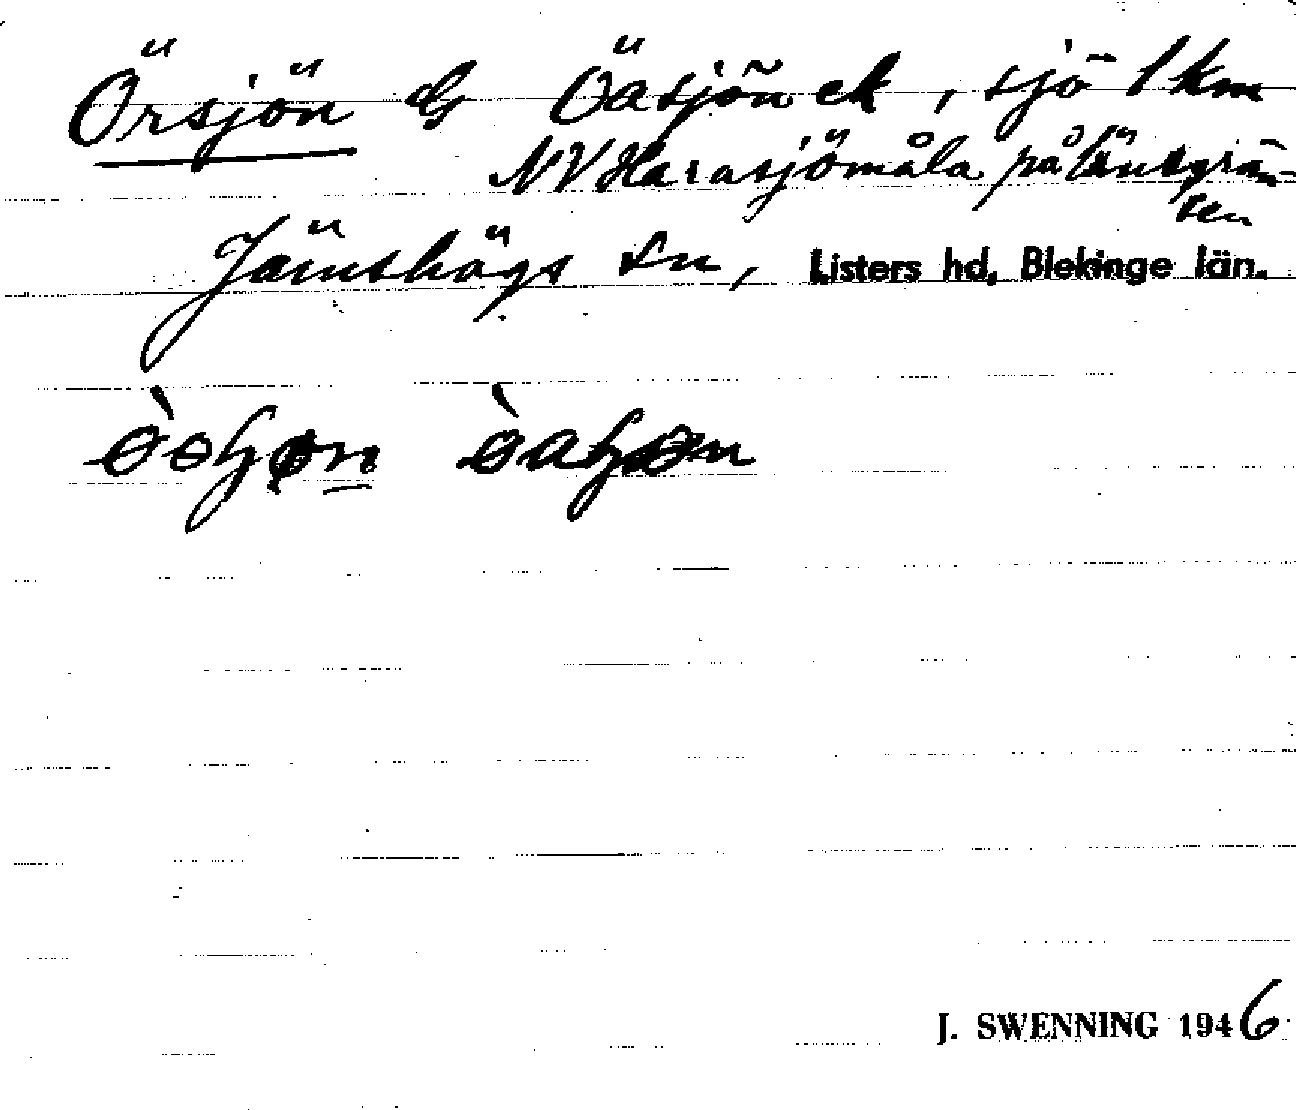 Örsjön G Öasjön ek, sjö 1 km
NV Harasjömåla på länsgrän-
sen
Jämshögs sn, Listers hd, Blekinge län.
J. SWENNING 1946